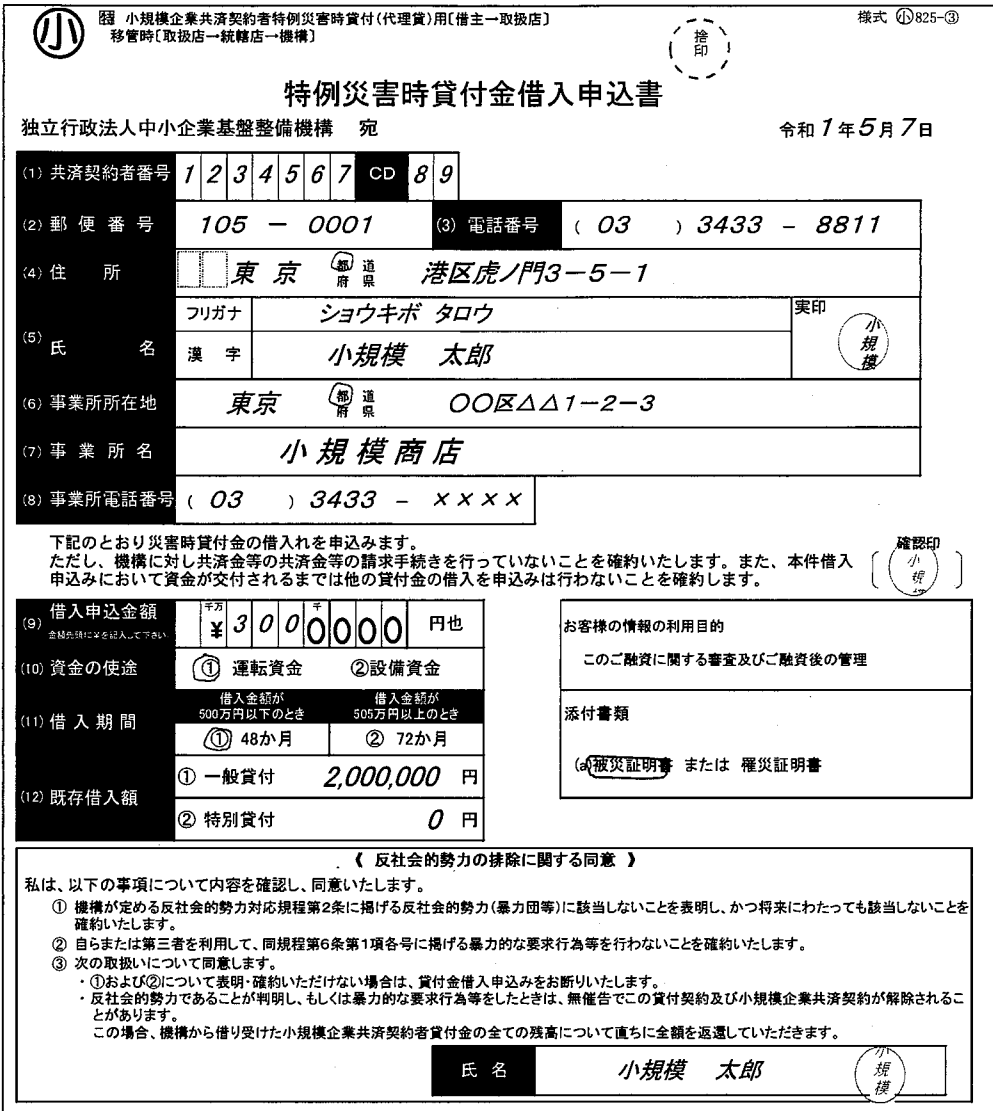 小 ㊕ 小規模企業共済契約者特例災害時貸付(代理貸)用[借主→取扱店] 様式 ㊥825-③
移管時[取扱店→統轄店→機構]
捨印
特例災害時貸付金借入申込書
独立行政法人中小企業基盤整備機構 宛 令和1年5月7日
(1) 共済契約者番号 1 2 3 4 5 6 7 CD 8 9
(2) 郵便番号 105 - 0001 (3) 電話番号 ( 03 ) 3433 - 8811
(4) 住所 東京 都道府県 港区虎ノ門3-5-1
(5) 氏名 フリガナ ショウキボ タロウ 実印
漢字 小規模 太郎 小規模
(6) 事業所所在地 東京 都道府県 〇〇区△△1-2-3
(7) 事業所名 小規模商店
(8) 事業所電話番号 ( 03 ) 3433 - ××××
下記のとおり災害時貸付金の借入れを申込みます。 確認印
ただし、機構に対し共済金等の請求手続きを行っていないことを確約いたします。また、本件借入
申込みにおいて資金が交付されるまでは他の貸付金の借入を申込みは行わないことを確約します。
小規模
(9) 借入申込金額 千万 千 ¥3000000 円也
金額先頭に¥を記入して下さい
(10) 資金の使途 ① 運転資金 ②設備資金
(11) 借入期間 借入金額が500万円以下のとき 借入金額が505万円以上のとき
① 48か月 ② 72か月
(12) 既存借入額 ① 一般貸付 2,000,000 円
② 特別貸付 0 円
お客様の情報の利用目的
このご融資に関する審査及びご融資後の管理
添付書類
(a)被災証明書 または 罹災証明書
《 反社会的勢力の排除に関する同意 》
私は、以下の事項について内容を確認し、同意いたします。
① 機構が定める反社会的勢力対応規程第2条に掲げる反社会的勢力(暴力団等)に該当しないことを表明し、かつ将来にわたっても該当しないことを
確約いたします。
② 自らまたは第三者を利用して、同規程第6条第1項各号に掲げる暴力的な要求行為等を行わないことを確約いたします。
③ 次の取扱いについて同意します。
・①および②について表明・確約いただけない場合は、貸付金借入申込みをお断りいたします。
・反社会的勢力であることが判明し、もしくは暴力的な要求行為等をしたときは、無催告でこの貸付契約及び小規模企業共済契約が解除されるこ
とがあります。
この場合、機構から借り受けた小規模企業共済契約者貸付金の全ての残高について直ちに全額を返還していただきます。
氏名 小規模 太郎 小規模